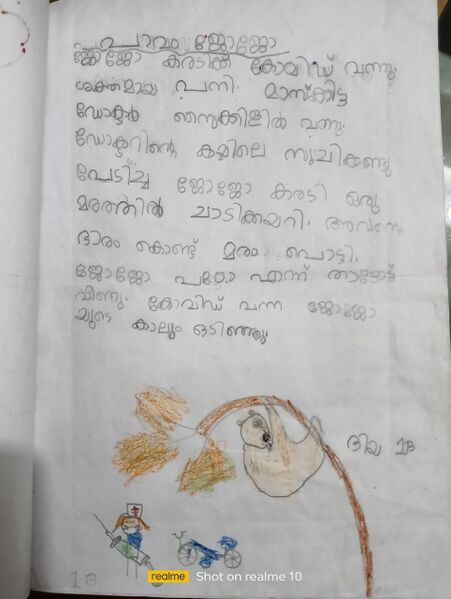 പാവം ജോജോ
ജോജോ കരടിക്ക് കോവിഡ് വന്നു.
ശക്തമായ പനി. മാസ്കിട്ട
ഡോക്ടർ സൈക്കിളിൽ വന്നു.
ഡോക്ടറിന്റെ കയ്യിലെ സൂചികണ്ടു
പേടിച്ച ജോജോ കരടി ഒരു
മരത്തിൽ ചാടിക്കയറി. അവന്റെ
ഭാരം കൊണ്ട് മരം പൊട്ടി.
ജോജോ പഠോ എന്ന് താഴോട്ട്
വീണു. കോവിഡ് വന്ന ജോജോ
യുടെ കാലും ഒടിഞ്ഞു.
ദിയ 1B
1B
realme Shot on realme 10